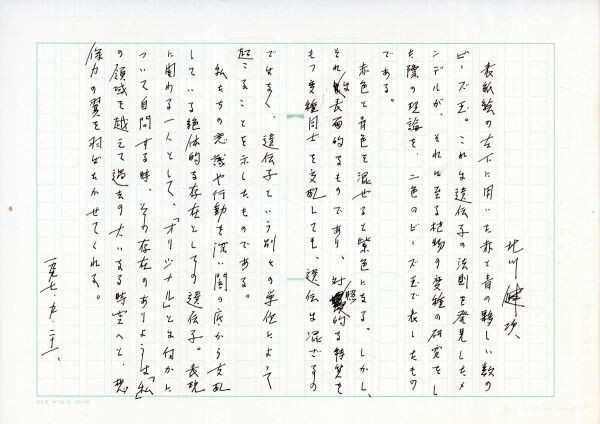 北川健次
表紙絵の左下に用いた赤と青の夥しい数の
ビーズ玉。これは遺伝子の法則を発見したメ
ンデルが、それに至る植物の変種の研究をし
た際の理論を、二色のビーズ玉で表したもの
である。
赤色と青色を混ぜると紫色になる。しかし、
それは表面的なものであり、対照的な特質を
もつ変種同士を交配しても、遺伝は混ざるの
ではなく、遺伝子という別々の単位によって
起こることを示したものである。
私たちの意識や行動を深い闇の底から支配
している絶体的な存在としての遺伝子。表現
に関わる一人として、「オリジナル」とは何かに
ついて自問する時、その存在のありようは、「私」
の領域を越えて過去の大いなる時空へと、想
像力の翼を羽ばたかせてくれる。
一九九七・九・二十一、